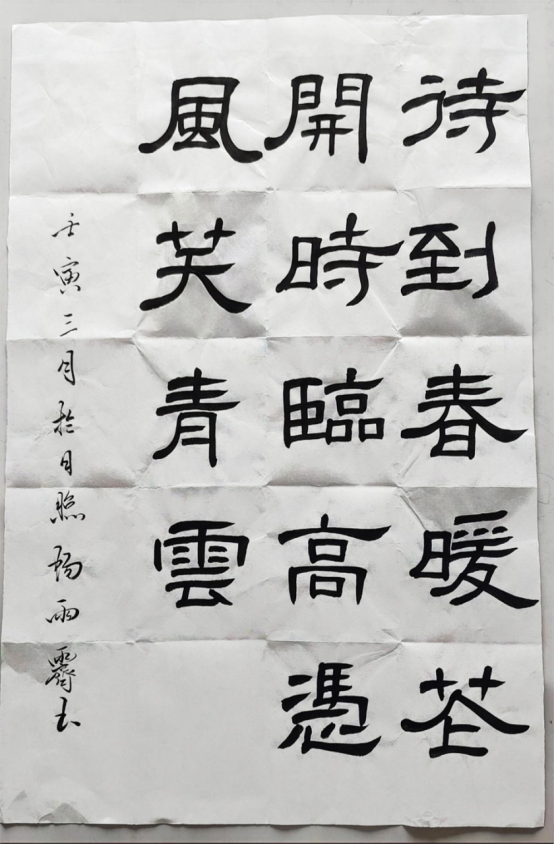 待到春暖花
開時臨高憑
風笑青雲
壬寅三月於日照楊雨霽書